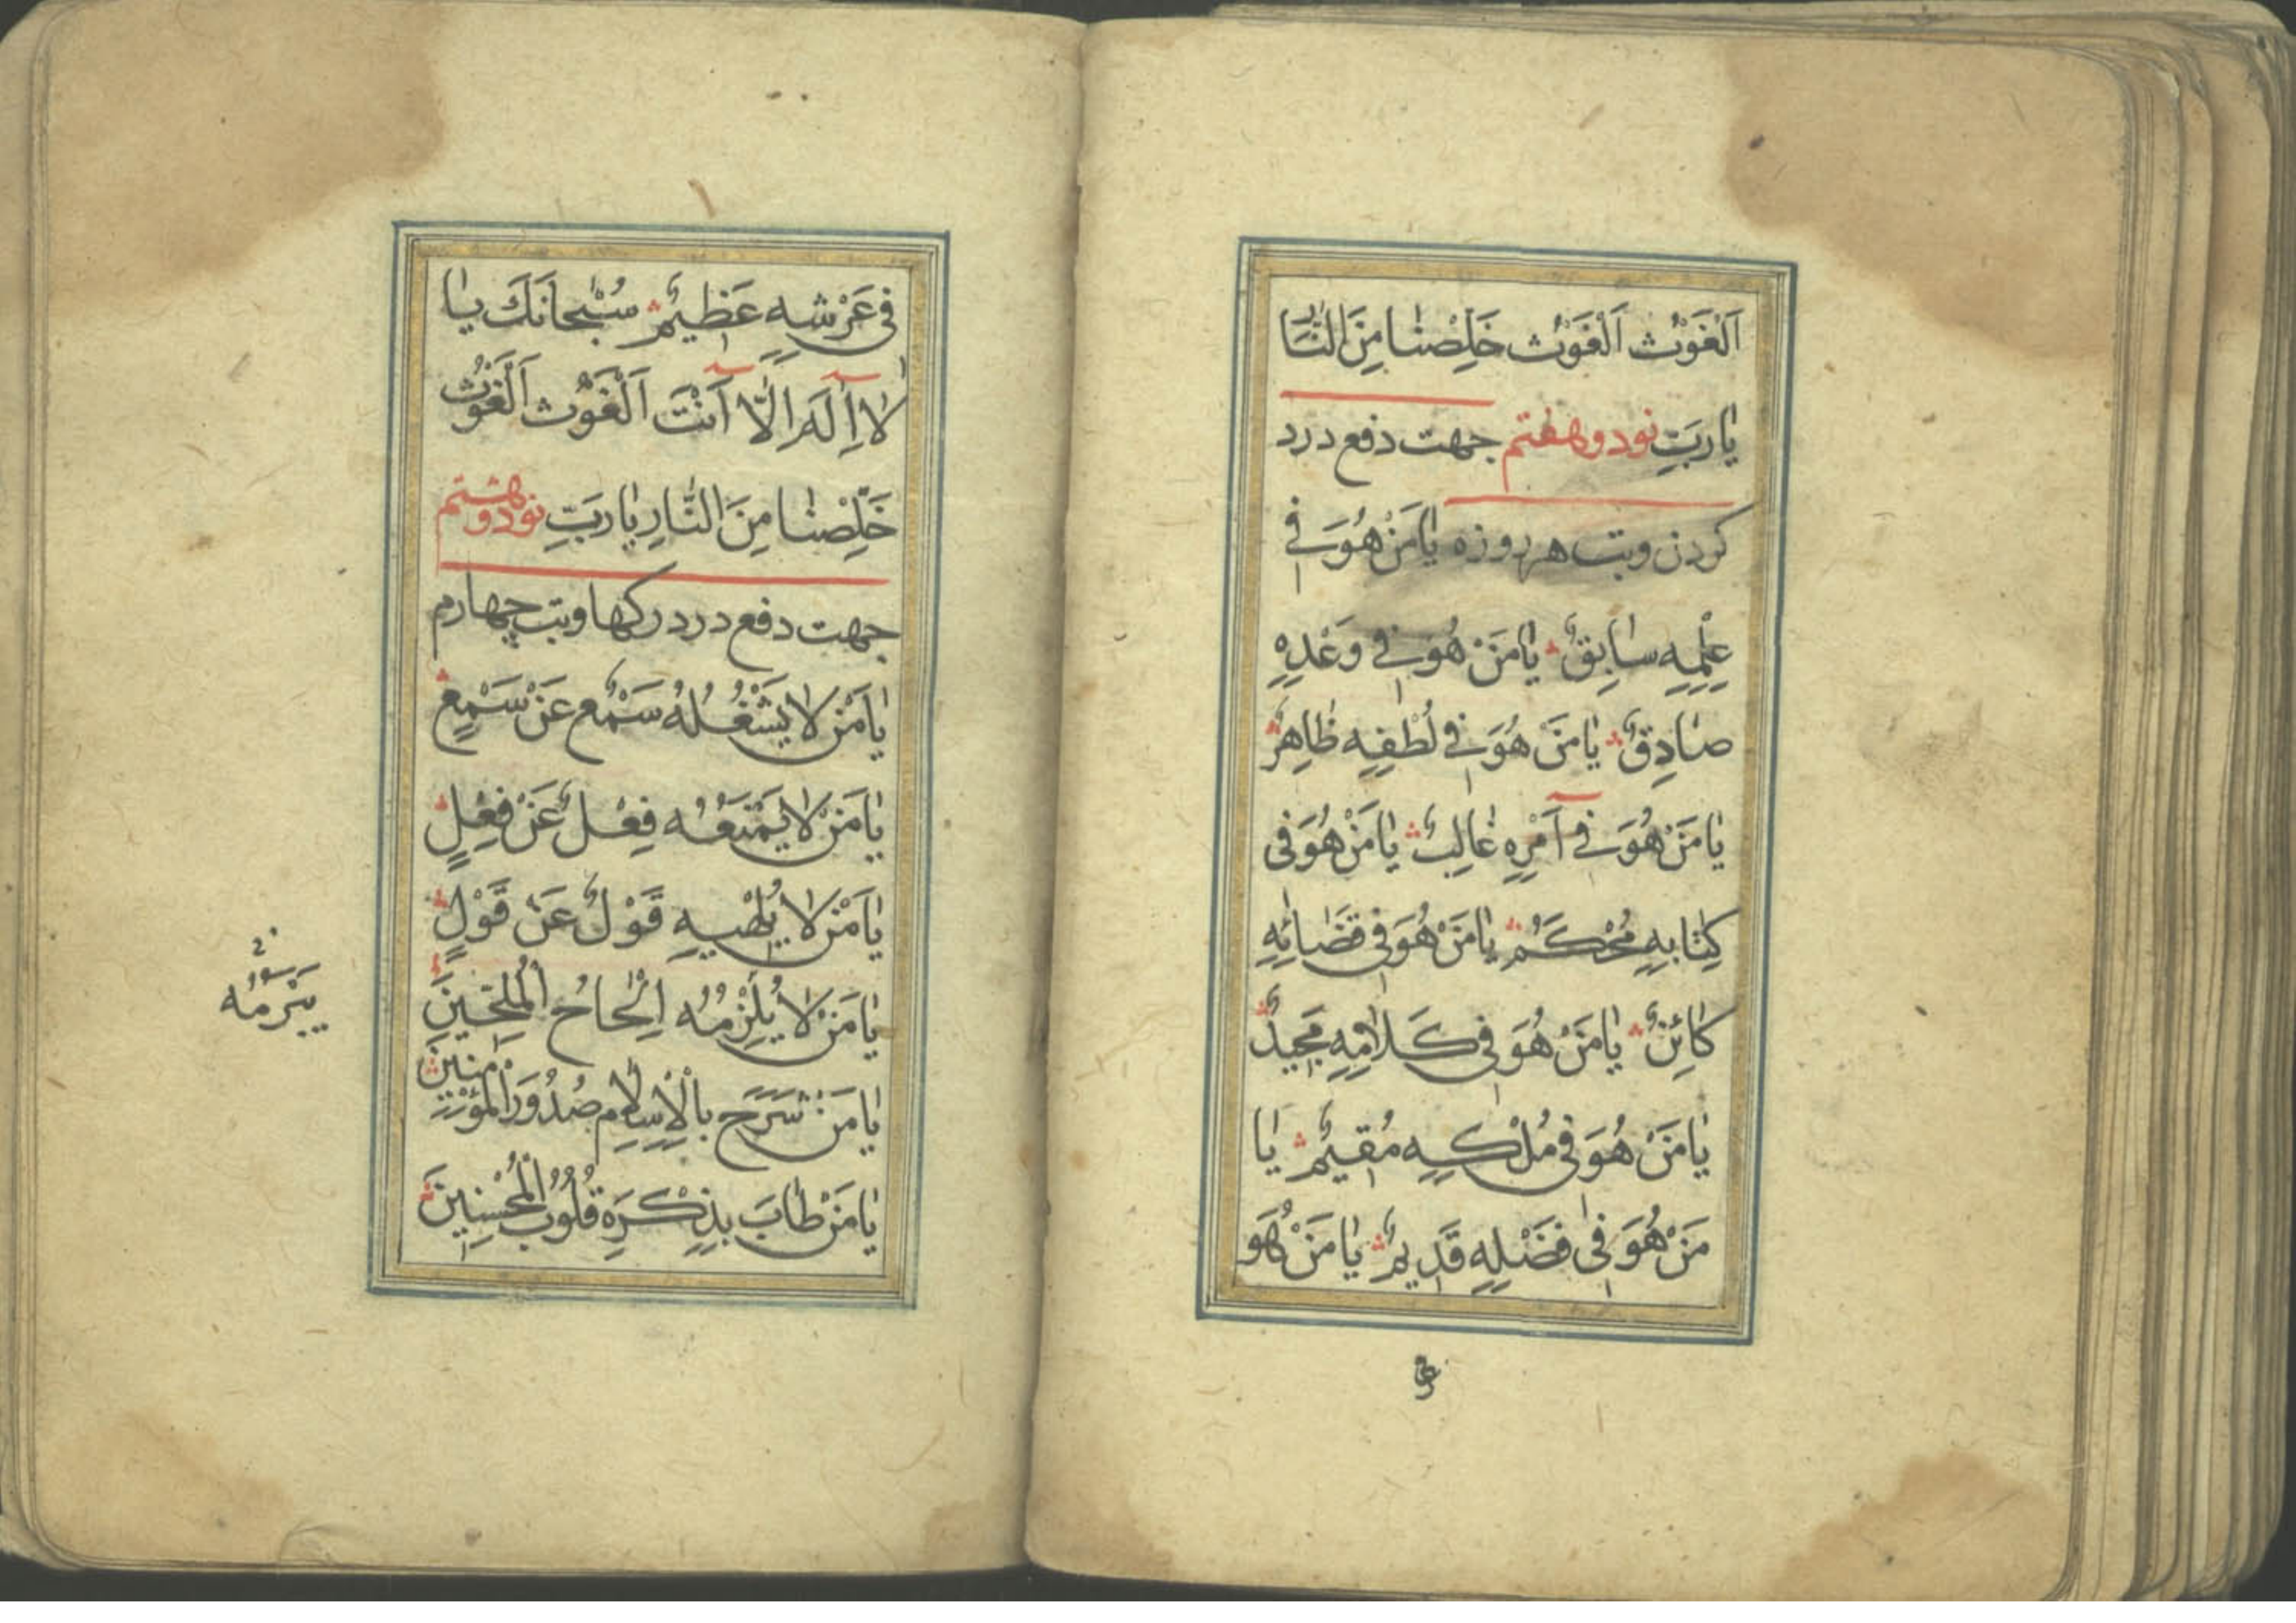 اَلْغَوْثَ اَلْغَوْثَ خَلِّصْنَا مِنَ النَّا
يَا رَبِّ نود و هفتم جهت دفع درد
كردن وتب هر روزه يَا مَنْ هُوَ فِي
عِلْمِهِ سَابِقٌ يَا مَنْ هُوَ فِي وَعْدِهِ
صَادِقٌ يَا مَنْ هُوَ فِي لُطْفِهِ ظَاهِرٌ
يَا مَنْ هُوَ فِي آَمْرِهِ غَالِبٌ يَا مَنْ هُوَ فِي
كِتَابِهِ مُحْكَمٌ يَا مَنْ هُوَ فِي قَضَائِهِ
كَائِنٌ يَا مَنْ هُوَ فِي كَلَامِهِ مَجِيدٌ
يَا مَنْ هُوَ فِي مُلْكِهِ مُقِيمٌ يَا
مَنْ هُوَ فِي فَضْلِهِ قَدِيمٌ يَا مَنْ هُوَ
فِي عَرْشِهِ عَظِيمٌ سُبْحَانَكَ يَا
لَا اِلَهَ اِلَّا اَنْتَ اَلْغَوْثَ اَلْغَوْثَ
خَلِّصْنَا مِنَ النَّارِ يَا رَبِّ نود و هشتم
جهت دفع درد ركها وتب چهارم
يَا مَنْ لَا يَشْغُلُهُ سَمْعٌ عَنْ سَمْعٍ
يَا مَنْ لَا يَمْنَعُهُ فِعْلٌ عَنْ فِعْلٍ
يَا مَنْ لَا يُلْهِيهِ قَوْلٌ عَنْ قَوْلٍ
يَا مَنْ لَا يُلْزِمُهُ اِلْحَاحُ الْمُلِحِّينَ
يَا مَنْ شَرَحَ بِالْاِسْلَامِ صُدُورَ الْمُؤْمِنِينَ
يَا مَنْ طَابَ بِذِكْرِهِ قُلُوبُ الْمُحْسِنِينَ
يبرمه